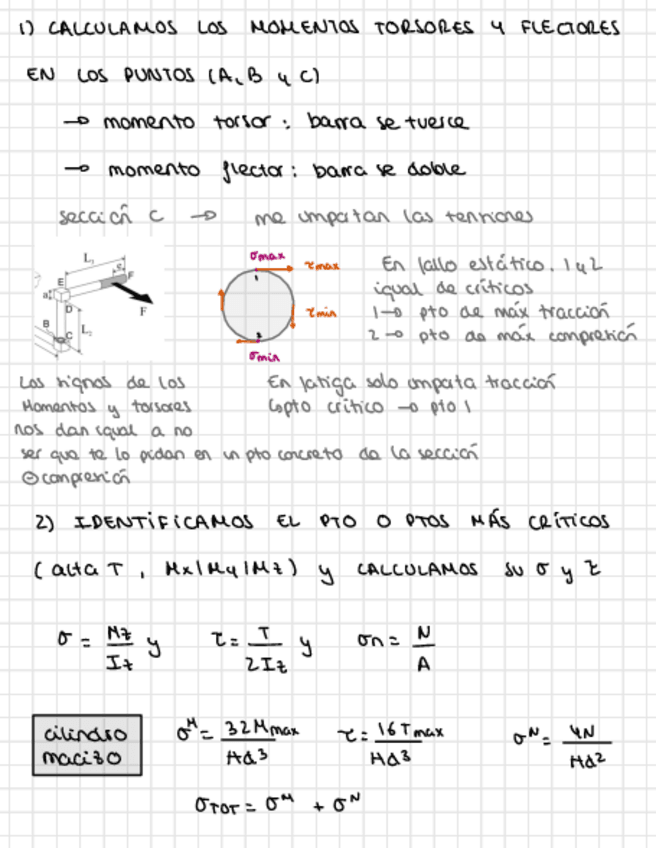 1) CALCULAMOS LOS MOMENTOS TORSORES Y FLECTORES
EN LOS PUNTOS (A, B y C)
→ momento torsor: barra se tuerce
→ momento flector: barra se doble
sección C → me importan las tensiones
L₁
e
E
F
a
D
B
L₂
C
F
σmax
τmax
1
τmin
2
σmin
En fallo estático. 1 y 2
igual de críticos
1→ pto de máx tracción
2→ pto de máx compresión
Los signos de los
Momentos y torsores
nos dan igual a no
ser que te lo pidan en un pto concreto de la sección
⊖ compresión
En fatiga solo importa tracción
↳ pto crítico → pto 1
2) IDENTIFICAMOS EL PTO O PTOS MÁS CRÍTICOS
(alta T, Mx/My/Mz) y CALCULAMOS SU σ y τ
σ = Mz/Iz y   τ = T/2Iz y   σn = N/A
cilindro
macizo
σᴹ = 32Mmax/πd³   τ = 16Tmax/πd³   σᴺ = 4N/πd²
σTOT = σᴹ + σᴺ